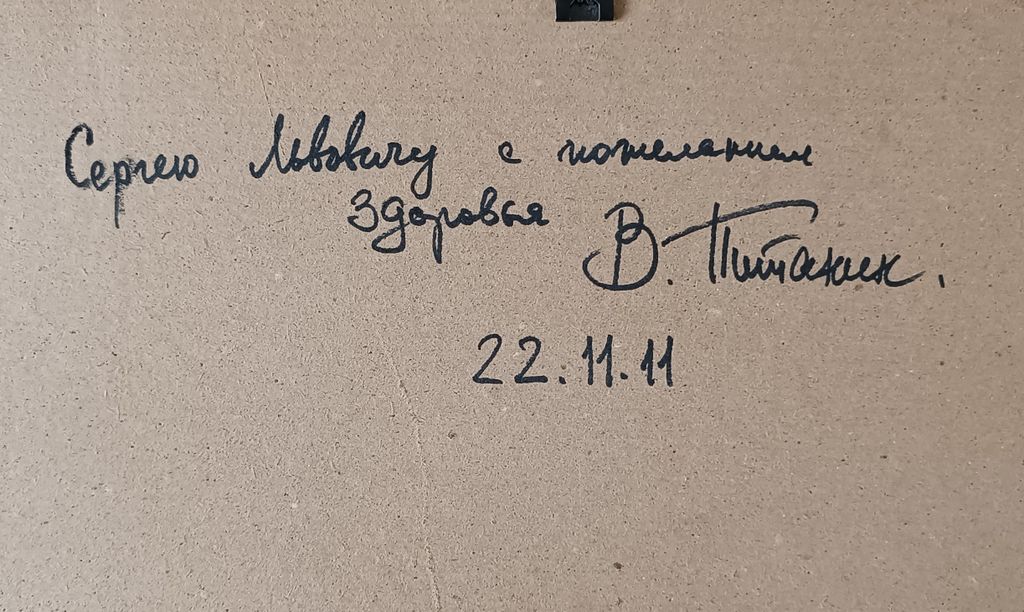 Сергею Львовичу с пожеланием
здоровья В. Питанин.
22.11.11